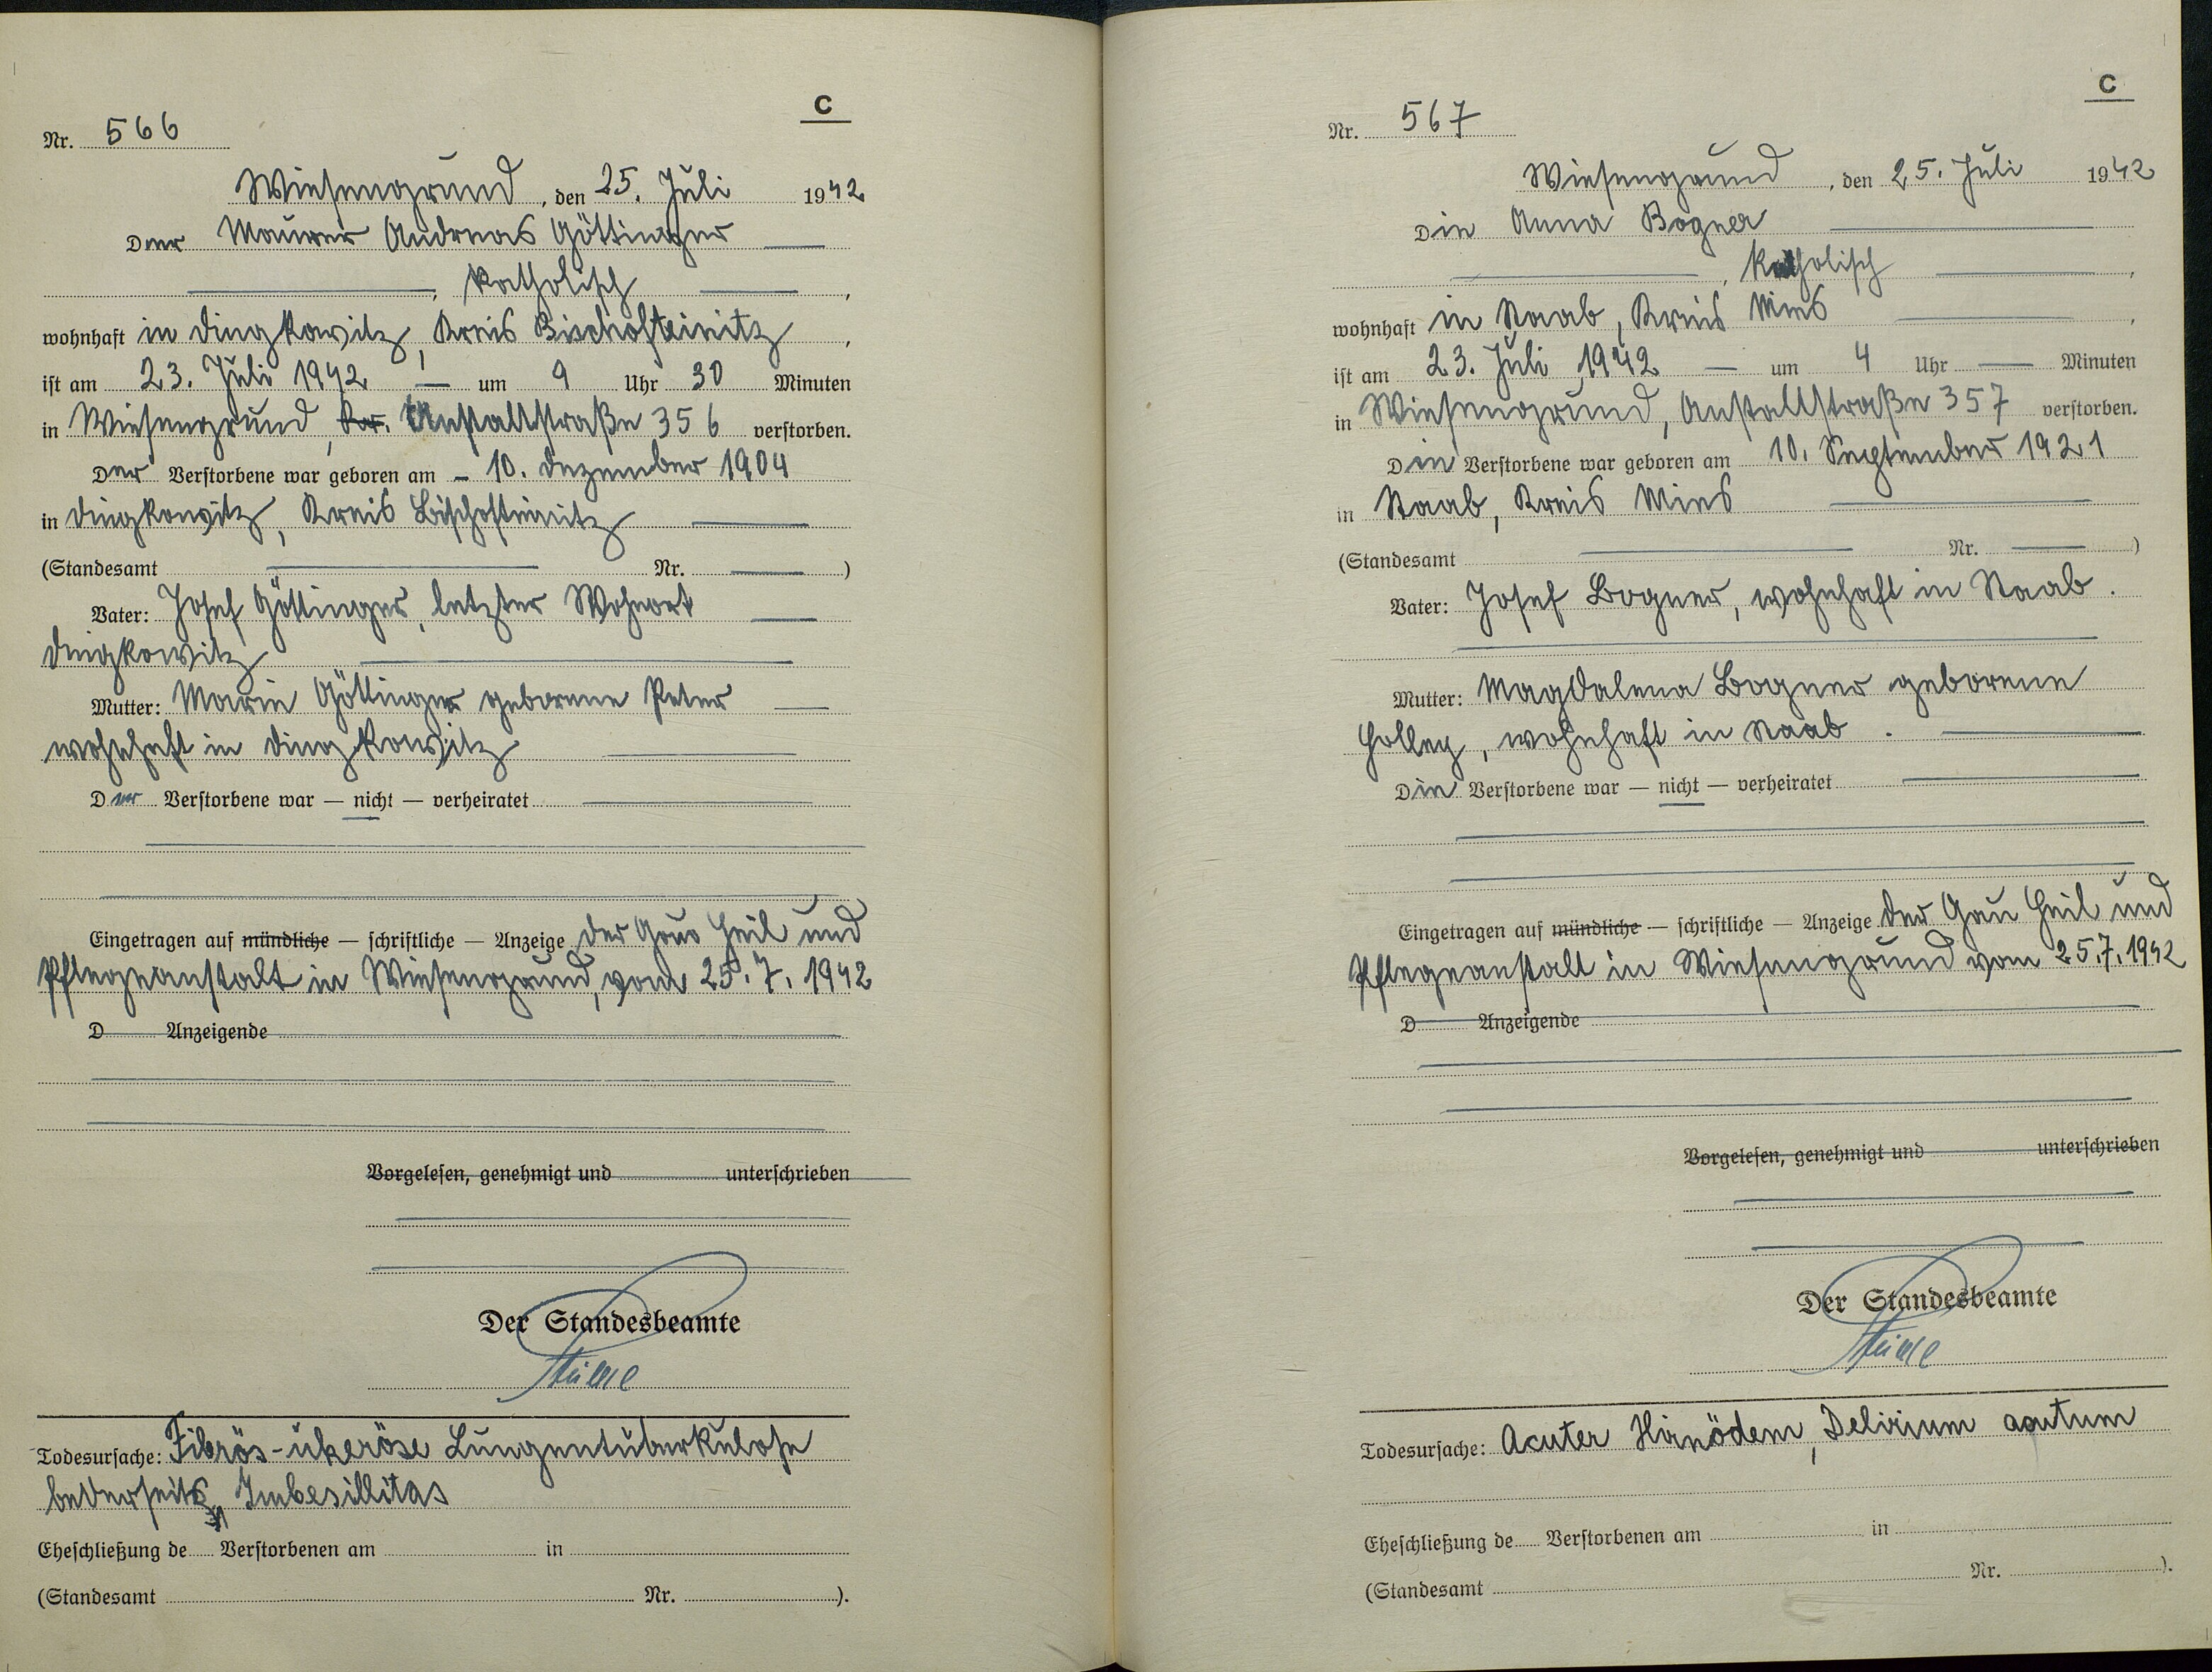 C
Nr. 566
Wiesengrund, den 25. Juli 1942
Der Maurer Andreas Göttinger
, katholisch ,
wohnhaft in Dingkowitz, Kreis Bischofteinitz ,
ist am 23. Juli 1942 — um 9 Uhr 30 Minuten
in Wiesengrund, Anstaltstraße 356 verstorben.
Der Verstorbene war geboren am - 10. Dezember 1904
in Dingkowitz, Kreis Bischofteinitz
(Standesamt Nr. )
Vater: Josef Göttinger, letzter Wohnort
Dingkowitz
Mutter: Marie Göttinger geborene Peter
wohnhaft in Dingkowitz
Der Verstorbene war — nicht — verheiratet
Eingetragen auf mündliche — schriftliche — Anzeige der Gau Heil und
Pflegeanstalt in Wiesengrund, vom 25.7.1942
D Anzeigende
Vorgelesen, genehmigt und unterschrieben
Der Standesbeamte
Todesursache: Fibrös-ulzeröse Lungentuberkulose
beiderseits, Imbesillitas
Eheschließung de Verstorbenen am in
(Standesamt Nr. ).
C
Nr. 567
Wiesengrund, den 25. Juli 1942
Die Anna Bogner
, katholisch ,
wohnhaft in Staab, Kreis Mies ,
ist am 23. Juli 1942 — um 4 Uhr — Minuten
in Wiesengrund, Anstaltstraße 357 verstorben.
Die Verstorbene war geboren am 10. September 1921
in Staab, Kreis Mies
(Standesamt Nr. )
Vater: Josef Bogner, wohnhaft in Staab.
Mutter: Magdalena Bogner geborene
Holley, wohnhaft in Staab.
Die Verstorbene war — nicht — verheiratet
Eingetragen auf mündliche — schriftliche — Anzeige der Gau Heil und
Pflegeanstalt in Wiesengrund vom 25.7.1942
D Anzeigende
Vorgelesen, genehmigt und unterschrieben
Der Standesbeamte
Todesursache: Acuter Hirnödem, Delirium acutum
Eheschließung de Verstorbenen am in
(Standesamt Nr. ).